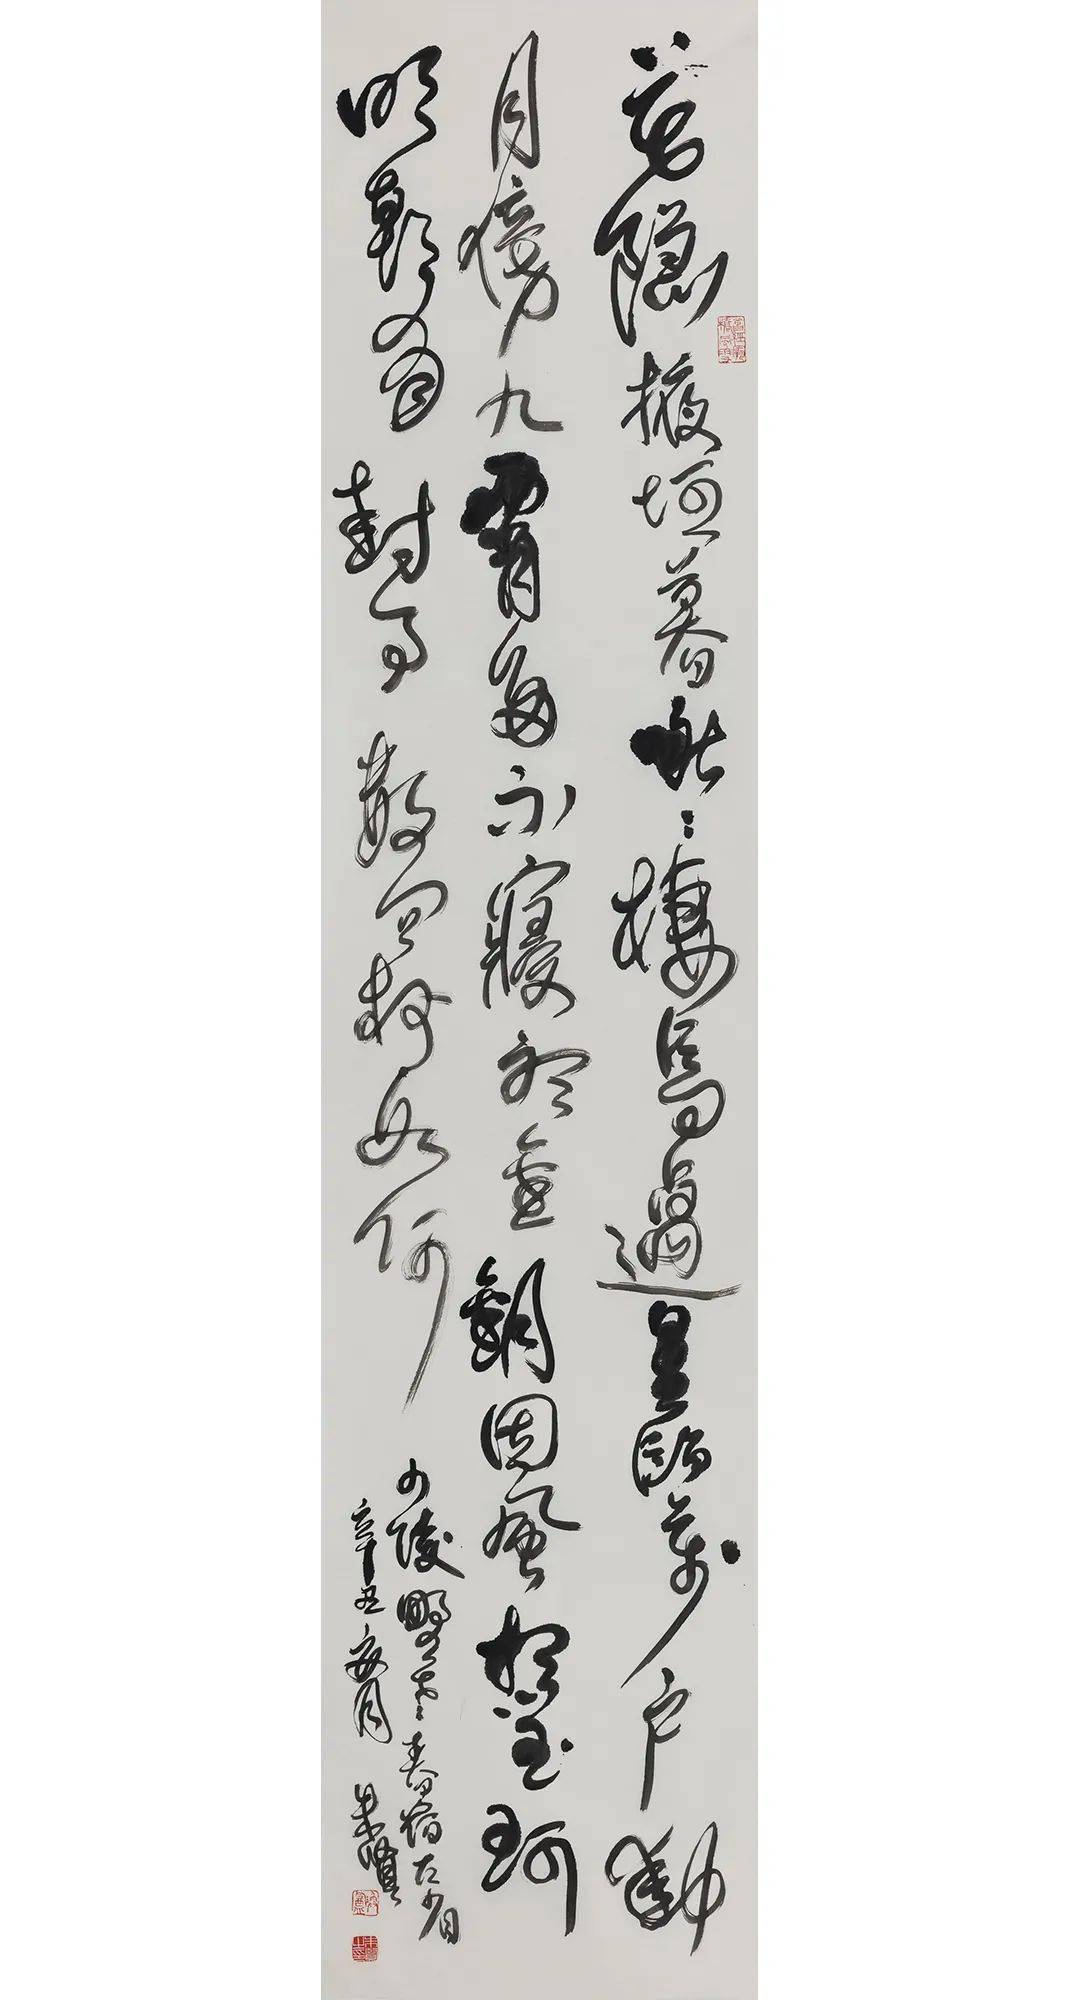 花隱掖垣暮啾啾棲鳥過星臨萬户動
月傍九霄多不寢聽金鑰因風想玉珂
明朝有封事數問夜如何
少陵野老春宿左省
辛丑夏月